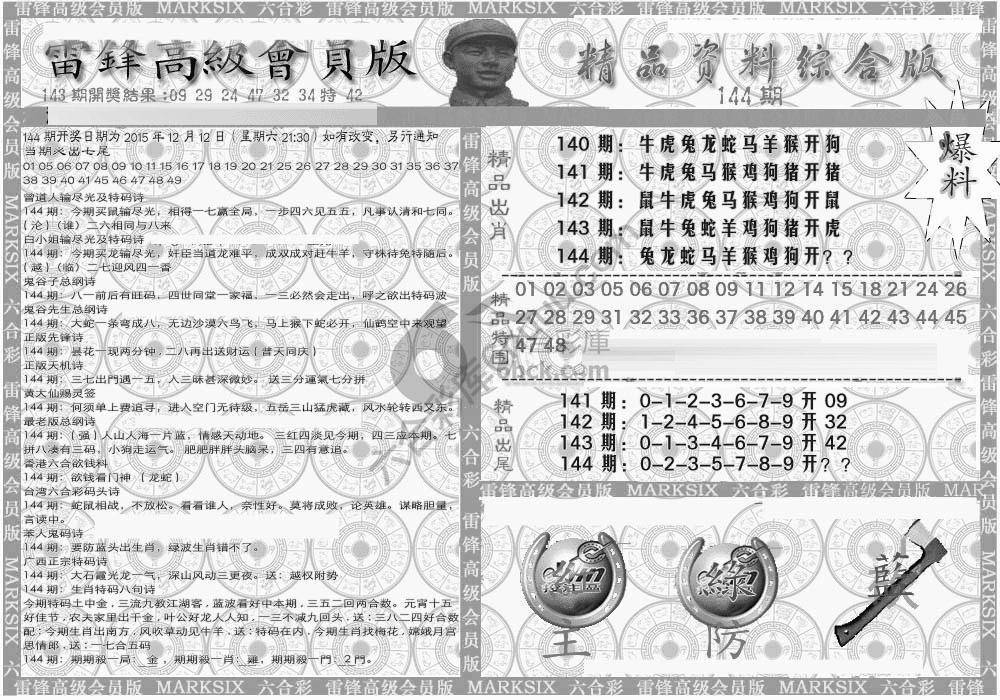 雷锋高级会员版 MARKSIX 六合彩 雷锋高级会员版 MARKSIX 六合彩 雷锋高级会员版 MARKSIX 六合彩 雷锋
雷鋒高級會員版
精品资料综合版
143期開獎結果:09 29 24 47 32 34特 42
144期
爆料
144期开奖日期为 2015 年 12 月 12 日（星期六 21:30）如有改变，另行通知
当期必出七尾
01 05 06 07 08 09 10 11 15 16 17 18 19 20 21 25 26 27 28 29 30 31 35 36 37
38 39 40 41 45 46 47 48 49
曾道人输尽光及特码诗
144期：今期买鼠输尽光，相得一七赢全局，一步四六见五五，凡事认清和七同。
(沦)(谁）二六相同与八来
白小姐输尽光及特码诗
144期：今期买龙输尽光，奸臣当道龙难平，成双成对赶牛羊，守株待免特随后。
(越)(临）二七迎风四一香
鬼谷子总纲诗
144期：八一前后有旺码，四世同堂一家福，一三必然会走出，呼之欲出特码波
鬼谷先生总纲诗
144期：大蛇一条弯成八，无边沙漠六鸟飞，马上猴下蛇必开，仙鹤空中来观望
正版先锋诗
144期：昙花一现两分钟，二八再出送财运(普天同庆)
正版天机诗
144期：三七出門遇一五，入三昧甚深微妙。 送三分運氣七分拼
黄大仙赐灵签
144期：何须单上费追寻，进入空门无待级，五岳三山猛虎藏，风水轮转西又东。
最老版总纲诗
144期：(强)人山人海一片蓝，情感天动地。 三红四淡见今期，四三应本期。七
拼八凑有三码，小狗走运气。 肥肥胖胖头脑呆，三四有意追。
香港六合欲钱料
144期：欲钱看门神 (龙蛇)
台湾六合彩码头诗
144期：蛇鼠相战，不放松。看看谁人，奈性好。莫将成败，论英雄。谋略胆量，
言读中。
苯人鬼码诗
144期：要防蓝头出生肖，绿波生肖错不了。
广西正宗特码诗
144期：大石霞光龙一气，深山风动三更夜。送：越权附势
144期：生肖特码八句诗
今期特码土中金，三流九教江湖客，蓝波看好中本期，三五二回两合数。元宵十五
好佳节，农夫家里出千金，叶公好龙人人知，一三不减九回头，送：三八二四好合数
配：今期生肖出南方，风吹草动见牛羊，送：特码在内，今期生肖找梅花，嫦娥月宫
思情郎，送：一七合五码
144期：期期殺一局： 金，期期殺一肖：雞，期期殺一門：2門。
精品出肖
140 期：牛虎兔龙蛇马羊猴开狗
141 期：牛虎兔马猴鸡狗猪开猪
142 期：鼠牛虎兔马猴鸡狗开鼠
143 期：鼠牛兔蛇羊鸡狗猪开虎
144 期：兔龙蛇马羊猴鸡狗开? ?
精品特围
01 02 03 05 06 07 08 09 11 12 14 15 18 21 24 26
27 28 29 31 32 33 36 37 38 39 40 41 42 43 44 45
47 48
精品出尾
141 期：0-1-2-3-6-7-9 开 09
142 期：1-2-4-5-6-8-9 开 32
143 期：0-1-3-4-6-7-9 开 42
144 期：0-2-3-5-7-8-9 开? ?
雷锋高级会员版 MARKSIX 六合彩 雷锋高级会员版 MARK
綠
主
防
雷锋高级会员版 MARKSIX 六合彩 雷锋高级会员版 MARKSIX 六合彩 雷锋高级会员版 MARKSIX 六合彩 雷锋